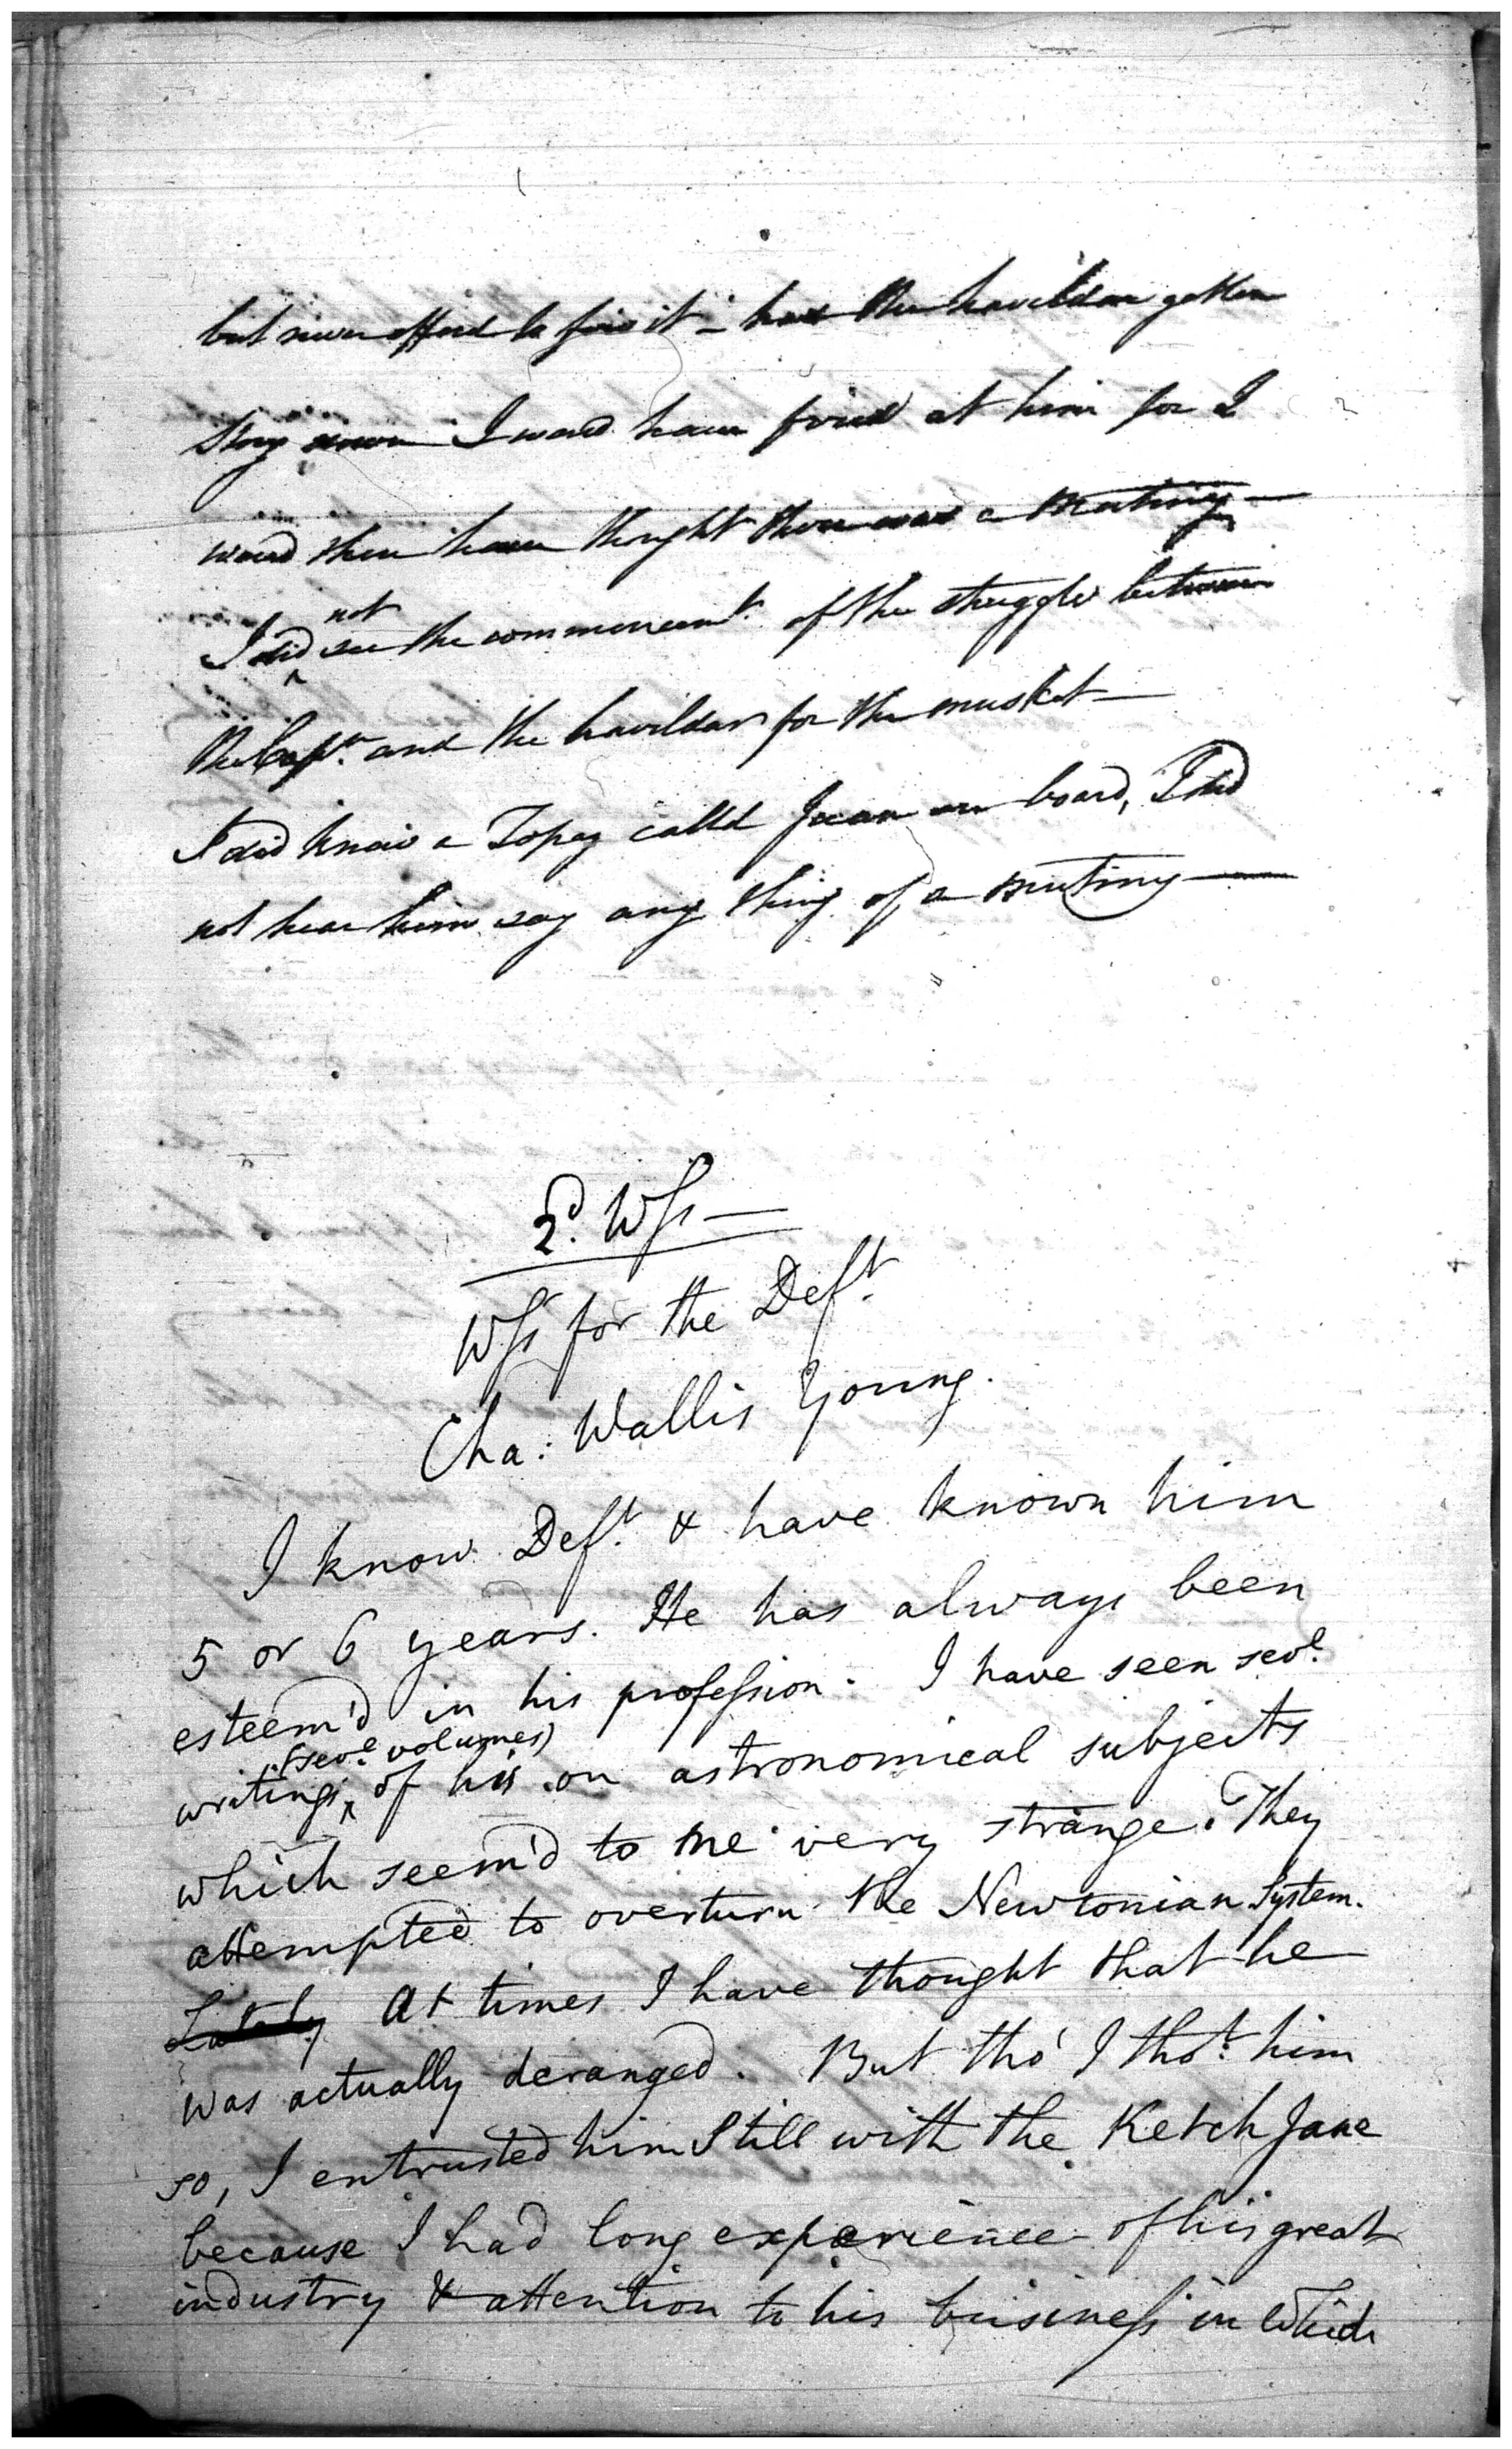 but never offerd to fire it – had the havildar gotten
I would have fired at him for I
would then have thought there was a Mutiny —
I did not see the commencemt. of the struggle between
the Captn. and the havildar for the musket —
I did know a Topaz calld Juan on board, I did
not hear him say any thing of a mutiny —
2d. Wss —
Wss for the Deft.
Cha: Wallis Young.
I know Deft. & have known him
5 or 6 years. He has always been
esteem'd in his profession. I have seen sevl.
writings (sevl. volumes) of his on astronomical subjects
which seem'd to me very strange. They
attempted to overturn the Newtonian System.
Lately At times I have thought that he
was actually deranged. But tho' I thot. him
so, I entrusted him Still with the Ketch Jane
because I had long experience of his great
industry & attention to his business in which